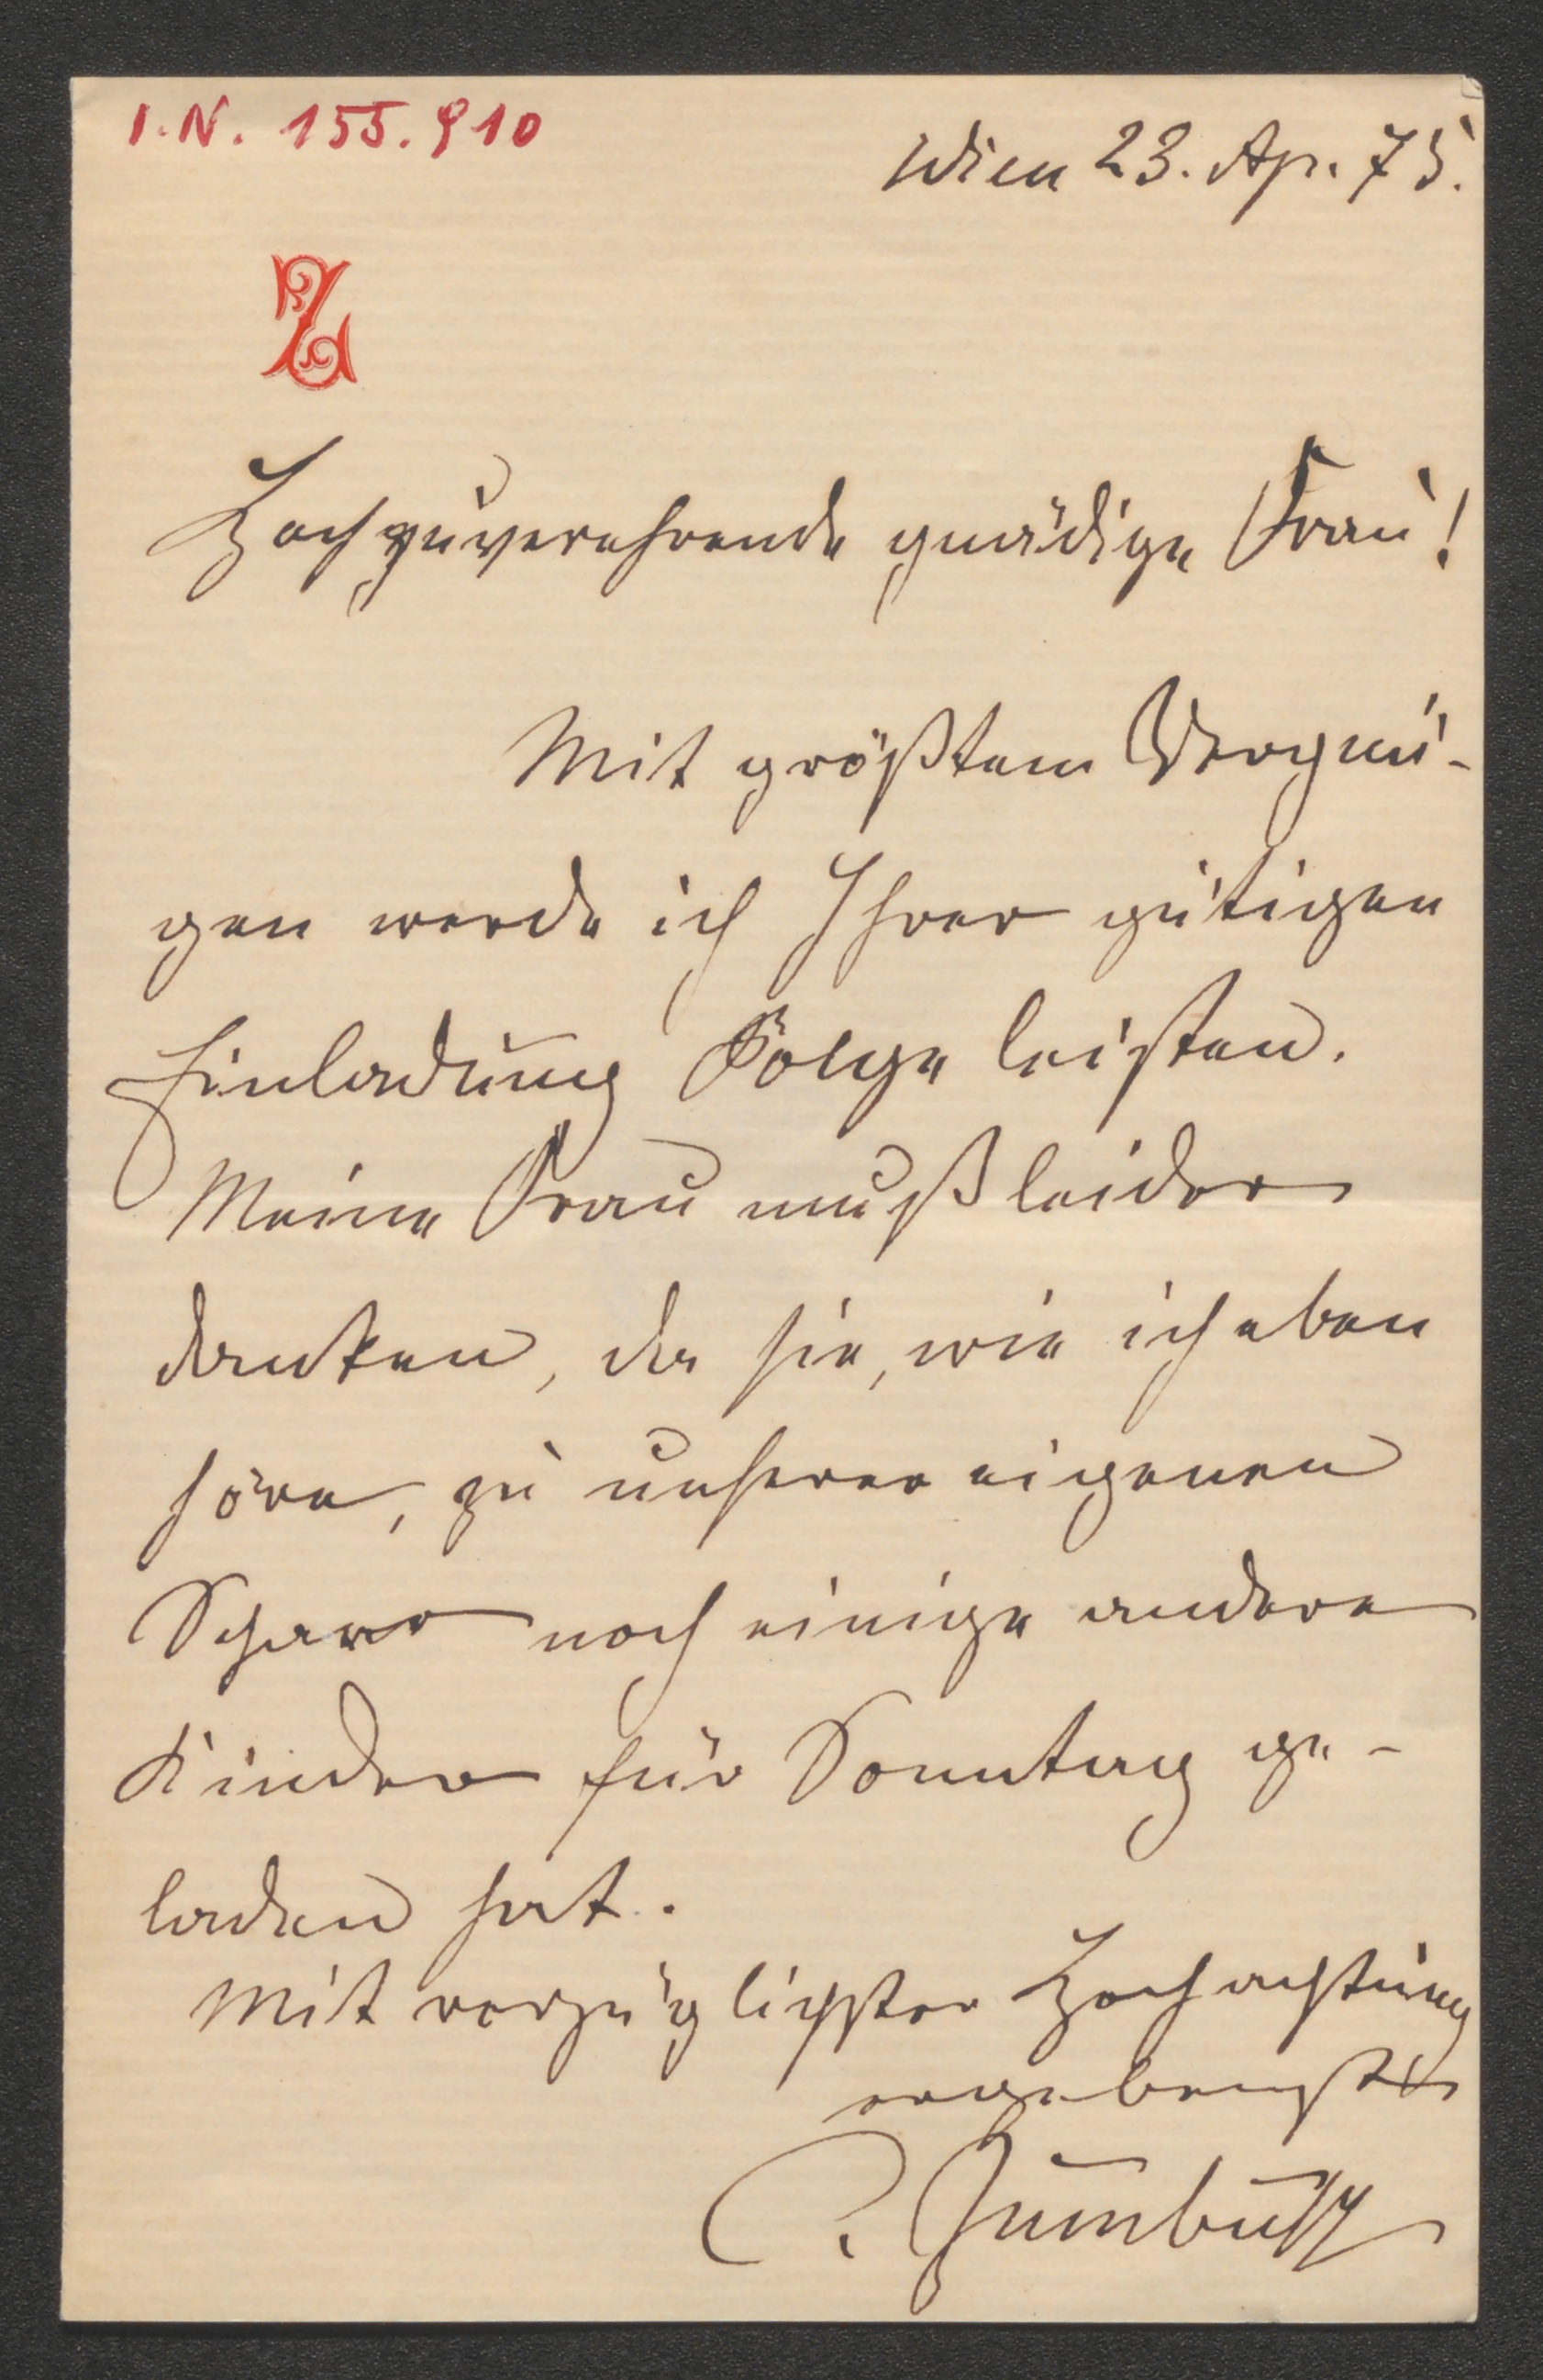 I.N. 155.910
Wien 23. Ap. 75.
Z
Hochzuverehrende gnädige Frau!
Mit größtem Vergnü-
gen werde ich Ihrer gütigen
Einladung Folge leisten.
Meine Frau muß leider
danken, da sie, wie ich eben
höre, zu unserer eigenen
Schaar noch einige andere
Kinder für Sonntag ge-
laden hat.
Mit vorzüglichster Hochachtung
ergebenster
C. Zumbusch